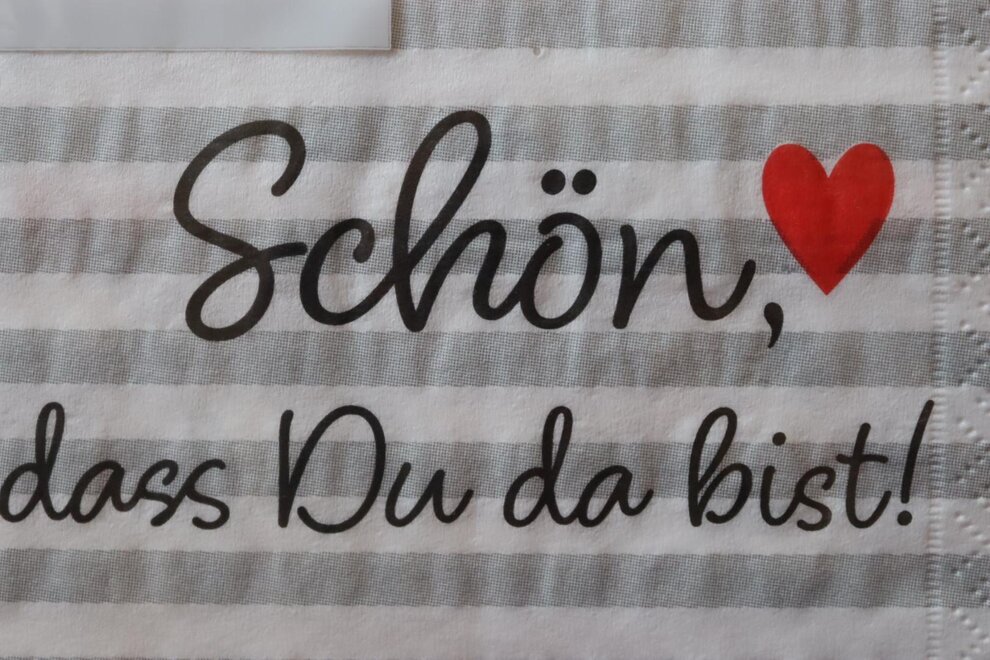 Schön,
dass Du da bist!